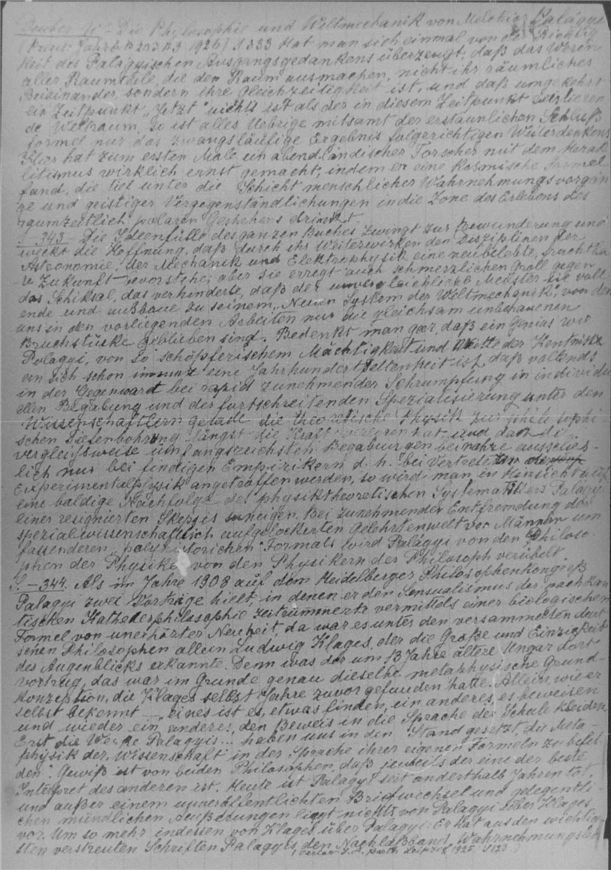 Die Philosophie und Weltmechanik von Melchior Palágyi
(Preuss. Jahrb. 1926) S 333 Hat man sich einmal von
keit des Palágyischen Ausgangsgedankens überzeugt, daß das Wesen
aller Raumteile, die den Raum ausmachen, nicht ihr räumliches
Beieinander sondern ihre Gleichzeitigkeit ist, und daß umgekehrt
ein Zeitpunkt „Jetzt" nichts ist als der in diesem Zeitpunkt
de Weltraum, so ist alles Uebrige mitsamt der erstaunlichen
formel nur das zwangsläufige Ergebnis folgerichtigen Weiterdenkens
Hier hat zum ersten Male ein abendländischer Forscher mit dem Herak
litismus wirklich ernst gemacht, indem er eine kosmische Formel
fand, die tief unter die Schicht menschlicher Wahrnehmungsvorgän
ge und geistiger Vergegenständlichungen in die Zone des Erlebens des
raumzeitlich polaren Geschehens dringt.
S. 343. Die Ideenfülle des ganzen Buches zwingt zur Bewunderung und
weckt die Hoffnung, daß durch ihr Weiterwirken den Disziplinen der
Astronomie, der Mechanik und Elektrophysik eine neubelebte, fruchtba
re Zukunft bevorstehe, aber sie erregt auch schmerzlichen Groll gegen
das Schiksal, das verhinderte, daß der unvergleichliche Meister
ende und ausbaue zu seinem „Neuen System der Weltmechanik", von dem
uns in den vorliegenden Arbeiten nur die gleichsam unbehauenen
Bruchstücke geblieben sind. Bedenkt man gar, daß ein Genius wie
Palagyi, von so schöpferischem Mächtigkeit und Weite der Kenntnisse
an sich schon eine Jahrhundert Seltenheit ist, daß vollends
in der Gegenwart bei rapid zunehmender Schrumpfung in individu
ellen Begabung und der fortschreitenden Spezialisierung unter den
Wissenschaftlern gerade die theoretische Physik zur philosophi
schen Tiefenbohrung längst die Kraft verloren hat und daß die
vergleichsweise umfangreichsten Begabungen beinahe ausschies
lich nur bei findigen Empirikern d. h. bei Vertretern der
Experimentalphysik angetroffen werden, so wird man in Hinsicht auf
eine baldige Nachfolge des physiktheoretischen Systematikers Palágyi
einer resignierten Skepsis zuneigen. Bei zunehmender Entfremdung der
spezialwissenschaftlich aufgelockerten Gelehrtenwelt vor Männern um
fassenderen, polyhistorischen Formats wird Palágyi von den Philoso
phen der Physiker, von den Physikern der Philosoph verübelt.
S. —344. Als im Jahre 1908 auf dem Heidelberger Philosophenkongreß
Palagyi zwei Vorträge hielt, in denen er den Sensualismus der nachkan
tischen Kathederphilosophie zertrümmerte vermittels einer biologischen
Formel von unerhörter Neuheit, da war es unter den versammelten deut
schen Philosophen allein Ludwig Klages, der die Größe und Einzigkeit
des Augenblicks erkannte. Denn was der um 13 Jahre ältere Ungar dort
vortrug, das war im Grunde genau dieselbe metaphysische Grund
konzeption, die Klages selbst Jahre zuvor gefunden hatte. Allein, wie er
selbst bekennt — eines ist es, etwas finden, ein anderes, es beweisen
und wieder ein anderes, den Beweis in die Sprache der Schule kleiden,
Erst die Werke Palagyis... haben uns in den Stand gesetzt, die Meta-
physik der „Wissenschaft" in der Sprache ihrer eigenen Formeln zu befeh
den". Gewiß ist von beiden Philosophen, daß jeweils der eine der beste
Interpret des anderen ist. Heute ist Palagyi seit anderthalb Jahren tot,
und außer einem unveröffentlichten Briefwechsel und gelegentli
chen mündlichen Äußerungen liegt nichts von Palagyi über Klages
vor. Um so mehr indessen von Klages über Palagyi: Er hat aus den wichtig
sten verstreuten Schriften Palagyis den Nachlaßband „Wahrnehmungsleh
(Verlag J. A. Barth Leipzig 1925 S 123